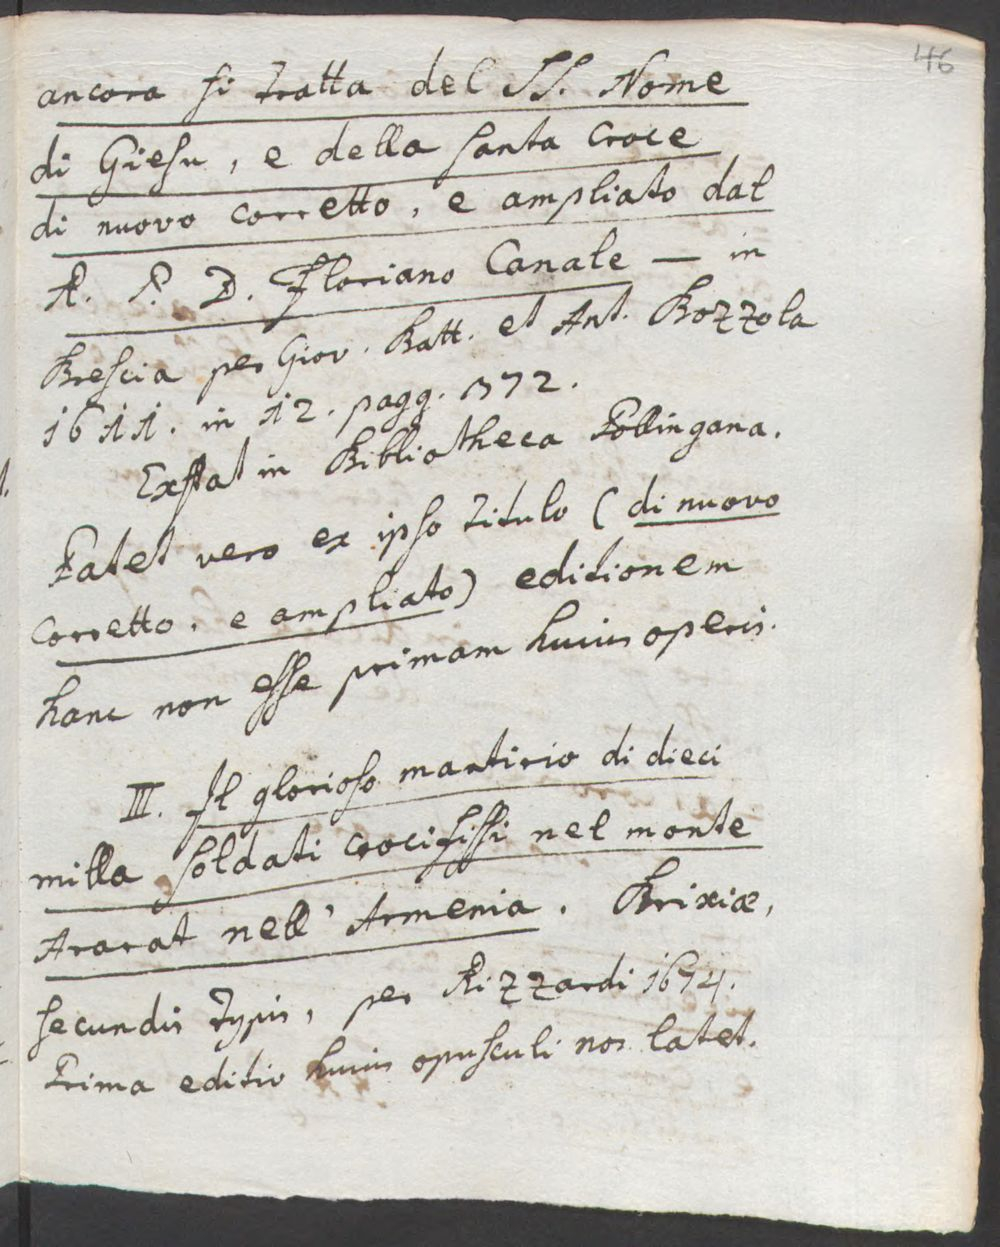 46
ancora si tratta del SS. Nome
di Giesu, e della santa Croce
di nuovo corretto, e ampliato dal
R. P. D. Floriano Canale — in
Brescia per Giov. Batt. et Ant. Bozzola
1611. in 12. pagg. 372.
Exstat in Bibliotheca Pollingana.
Patet vero ex ipso titulo (di nuovo
corretto, e ampliato) editionem
hanc non esse primam huius operis.
III. Il glorioso martirio di dieci
milla soldati crocifissi nel monte
Ararat nell' Armenia. Brixiæ,
secundis typis, per Rizzardi 1694.
Prima editio huius opusculi nos latet.